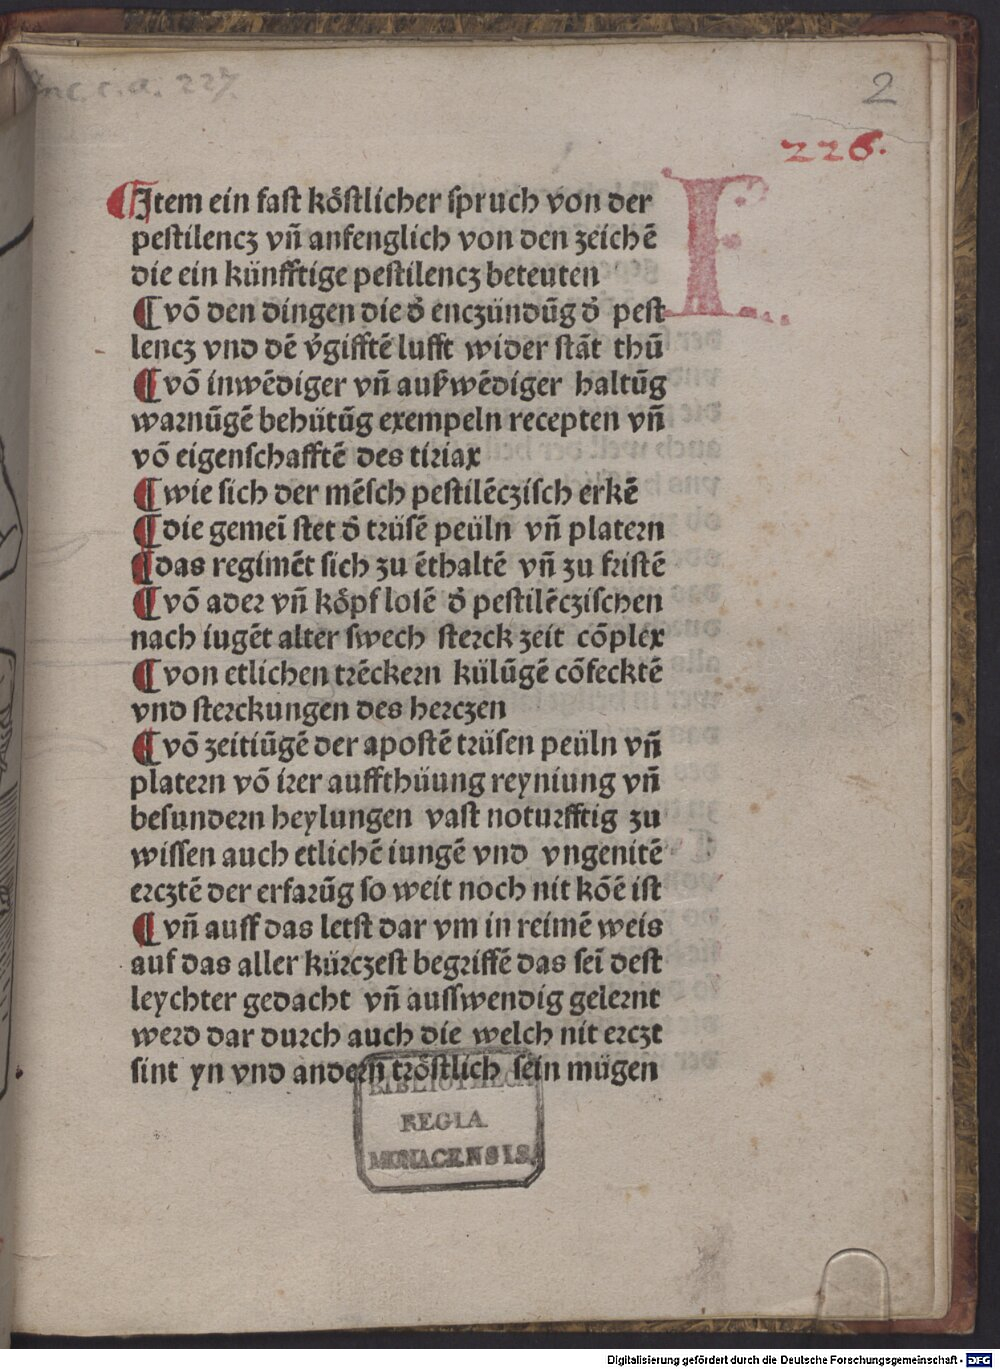 Inc. c. a. 227.
2
226.
¶ Item ein faſt koͤſtlicher ſpruch von der
peſtilencz vñ anfenglich von den zeichē
die ein künfftige peſtilencz beteuten
¶ võ den dingen die d̓ enczündūg d̓ peſt
lencz vnd dē v̓gifftē lufft wider ſtāt thū
¶ võ inwēdiger vñ auſzwēdiger haltūg
warnūgē behütūg exempeln recepten vñ
võ eigenſchafftē des tiriax
¶ wie ſich der mēſch peſtilēcziſch erkē
¶ die gemeī ſtet d̓ trüſē peüln vñ platern
¶ das regimēt ſich zu ēthaltē vñ zu friſtē
¶ võ ader vñ koͤpf loſē d̓ peſtilēcziſchen
nach iugēt alter ſwech ſterck zeit cōplex
¶ von etlichen trēckern külūgē cōfecktē
vnd ſterckungen des herczen
¶ võ zeitiūgē der apoſtē trüſen peüln vñ
platern võ irer auffthüung reyniung vñ
beſundern heylungen vaſt noturfftig zu
wiſſen auch etlichē iungē vnd vngenitē
ercztē der erfarūg ſo weit noch nit kōē iſt
¶ vñ auff das letſt dar vm in reimē weis
auf das aller kürczeſt begriffē das ſeī deſt
leychter gedacht vñ auſſwendig gelernt
werd dar durch auch die welch nit erczt
ſint yn vnd andern troͤſtlich ſein mügen
BIBLIOTHECA
REGIA
MONACENSIS.
Digitalisierung gefördert durch die Deutsche Forschungsgemeinschaft - DFG